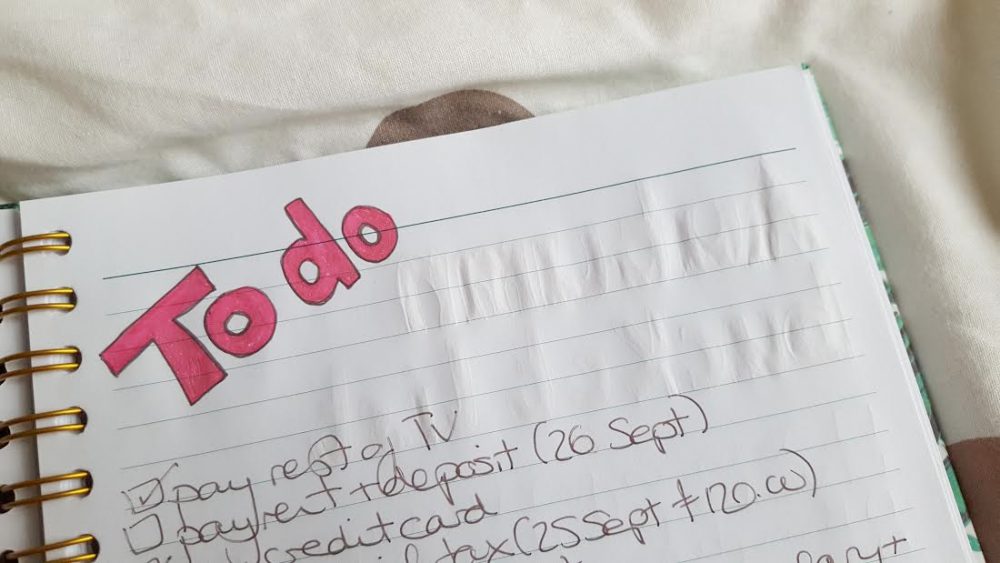 To do
pay rest of TV
pay rent + deposit (26 Sept)
credit card
tax (25 Sept £120.00)